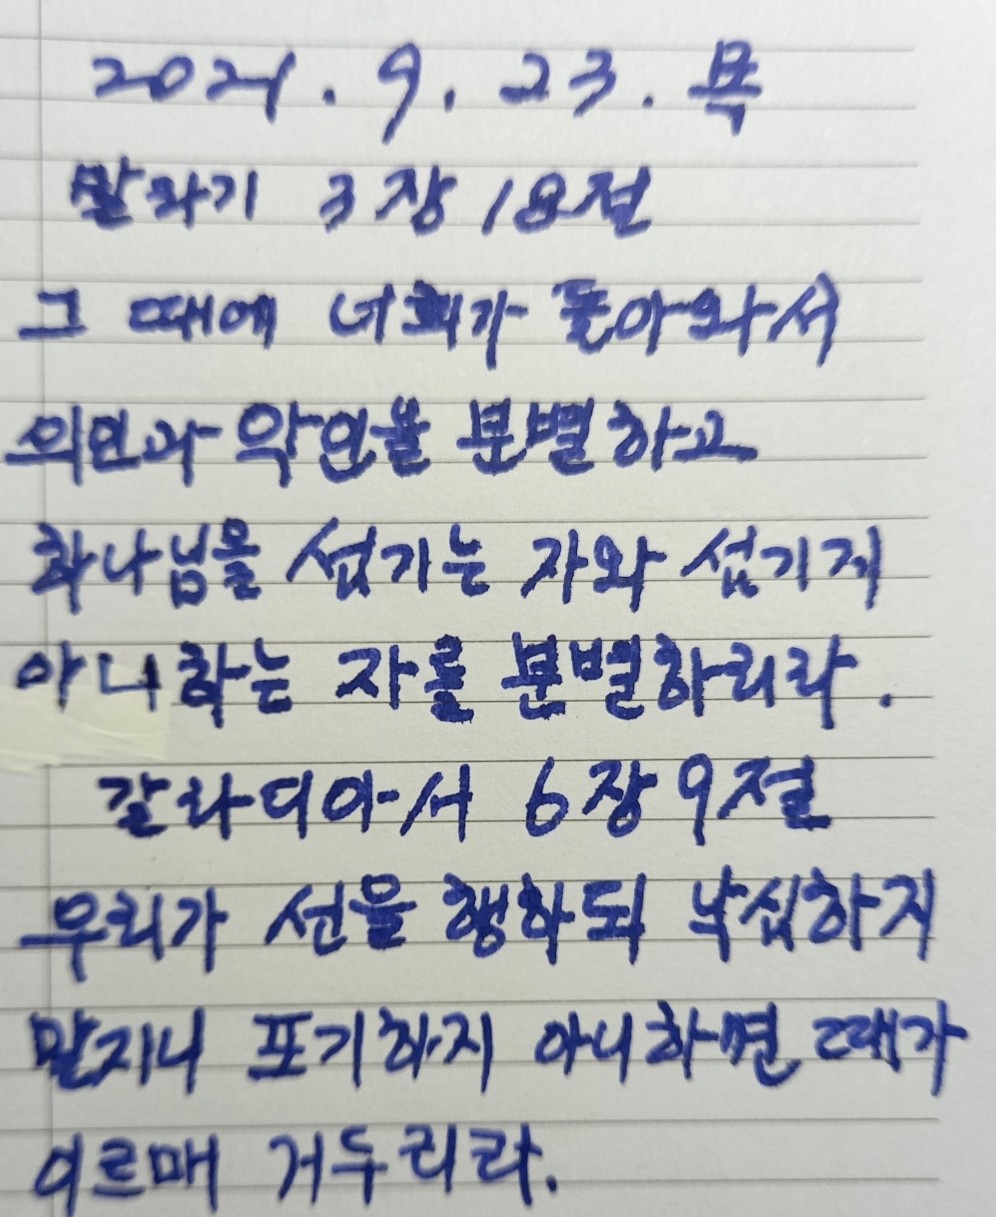 2021. 9. 23. 목
말라기 3장 18절
그 때에 너희가 돌아와서
의인과 악인을 분별하고
하나님을 섬기는 자와 섬기지
아니하는 자를 분별하리라.
갈라디아서 6장 9절
우리가 선을 행하되 낙심하지
말지니 포기하지 아니하면 때가
이르매 거두리라.